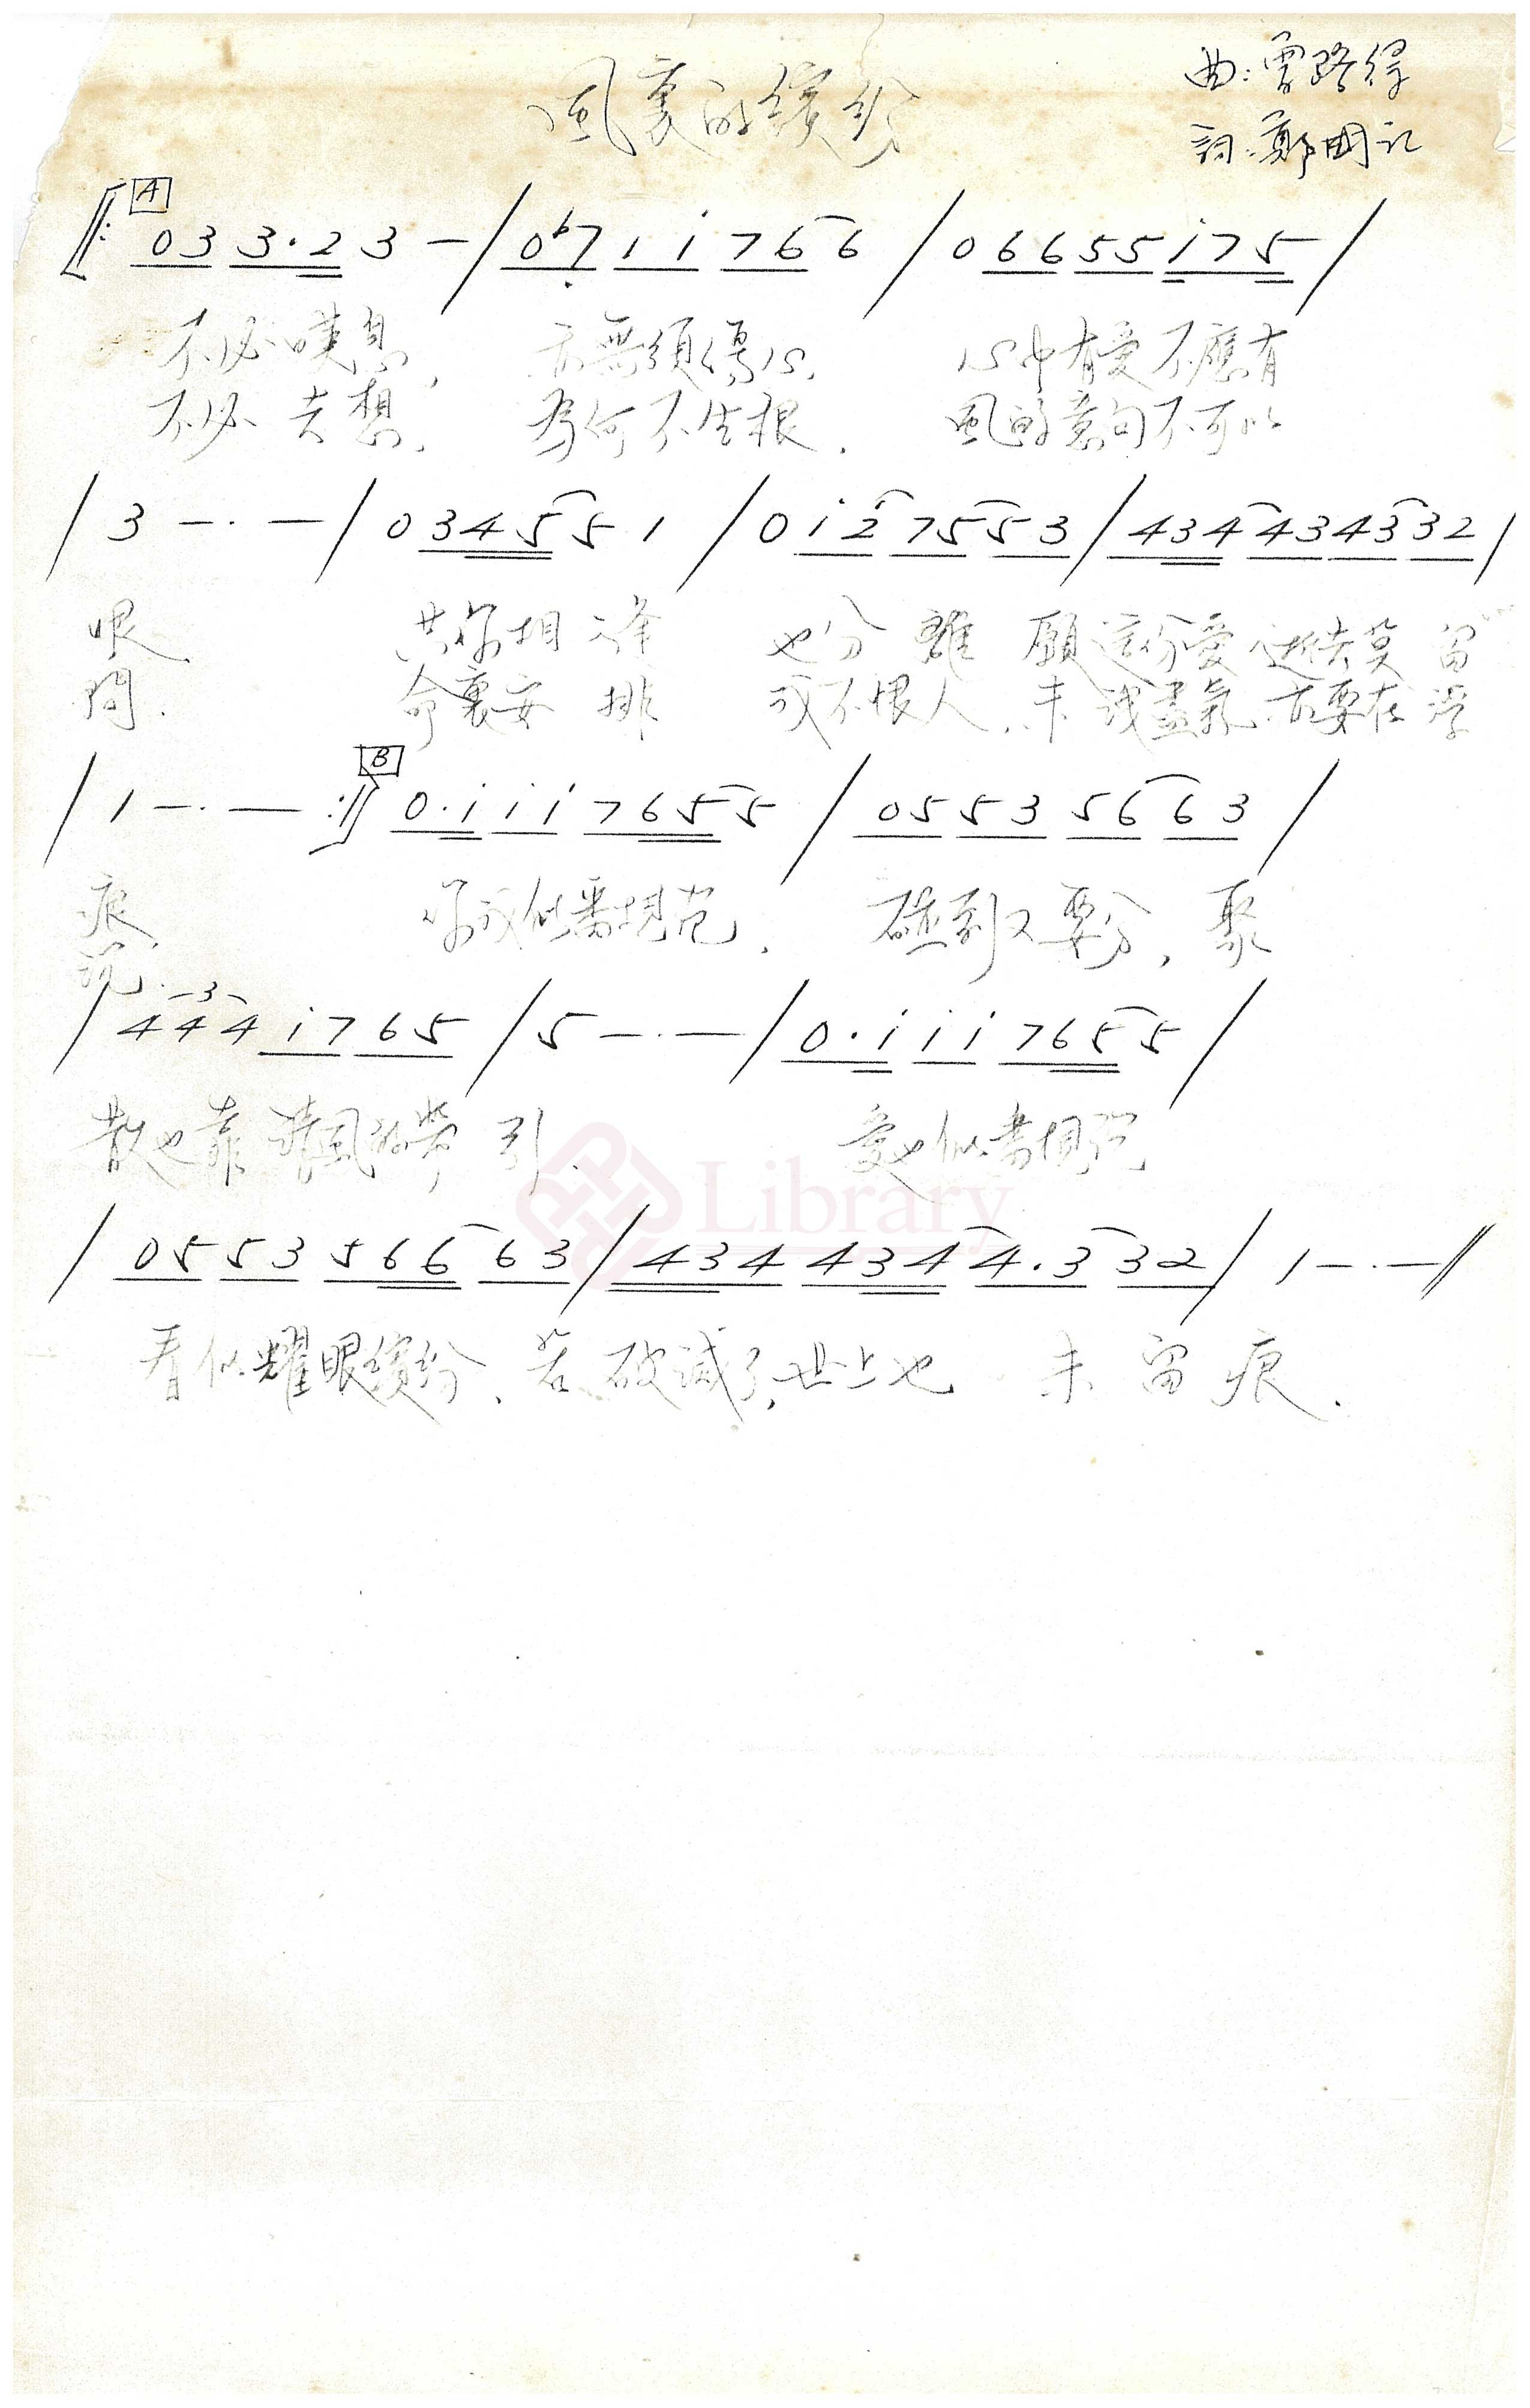 風裏的繽紛
曲:曾路得
詞:鄭國江
A
0 3 3·2 3 — / 0 b7 1 i 7 6 6 / 0 6 6 5 5 i 7 5 /
不必嘆息, 亦無須傷心. 心中有愛不應有
不必去想. 為何不生根. 風的意向不可以
/ 3 — · — / 0 3 4 5 5 1 / 0 i 2 7 5 5 3 / 4 3 4 4 3 4 3 3 2 /
恨 共你相逢 也分離 願這份愛逝去莫留
問. 命裏安排 或不恨人. 未 亦要在
/ 1 — · — :// B 0·i i i 7 6 5 5 / 0 5 5 3 5 6 6 3 /
痕 你我似番梘泡. 碰到又要分, 聚
/ 4 4 4 i 7 6 5 / 5 — · — / 0·i i i 7 6 5 5 /
3
散也靠清風的帶引. 愛也似番梘泡
/ 0 5 5 3 5 6 6 6 3 / 4 3 4 4 3 4 4·3 3 2 / 1 — · — //
看似耀眼繽紛. 若破滅了,世上也未留痕.
Library